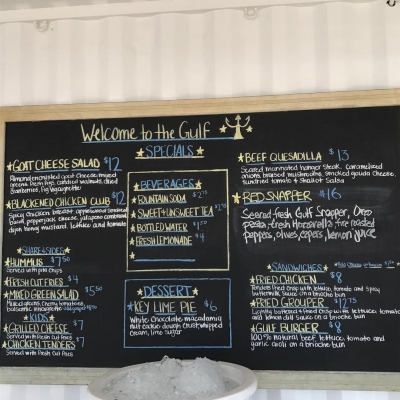 Welcome to the Gulf
SPECIALS
GOAT CHEESE SALAD $12
Almond encrusted goat cheese, mixed
greens, fresh figs, candied walnuts, dried
cranberries, fig vinaigrette
BLACKENED CHICKEN CLUB $12
Spicy chicken breast, applewood smoked
bacon, pepperjack cheese, jalapeno cornbread,
dijon honey mustard, lettuce and tomato
SHARE & SIDES
HUMMUS $7.50
Served with pita chips
FRESH CUT FRIES $4
MIXED GREEN SALAD $5.50
tomatoes
balsamic vinaigrette
KIDS
GRILLED CHEESE $7
Served with fresh cut fries
CHICKEN TENDERS $7
Served with fresh cut fries
BEVERAGES
FOUNTAIN SODA
SWEET & UNSWEET TEA
BOTTLED WATER
FRESH LEMONADE $4
DESSERT
KEY LIME PIE $6
White chocolate macadamia
nut cookie dough crust, whipped
cream, lime sugar
BEEF QUESADILLA $13
Seared marinated hanger steak, caramelized
onions, braised mushrooms, smoked gouda cheese,
sundried tomato & shallot salsa
RED SNAPPER $16
Seared fresh Gulf Snapper, Orzo
pasta, fresh Mozzarella, fire roasted
peppers, olives, capers, lemon juice
SANDWICHES
FRIED CHICKEN $8
Tenders fried crisp with lettuce, tomato and spicy
buttermilk sauce on a brioche bun
FRIED GROUPER $17.75
Lightly battered & fried crisp with lettuce, tomato
and lemon dill sauce on a brioche bun
GULF BURGER $8
100% natural beef, lettuce, tomato and
garlic aioli on a brioche bun